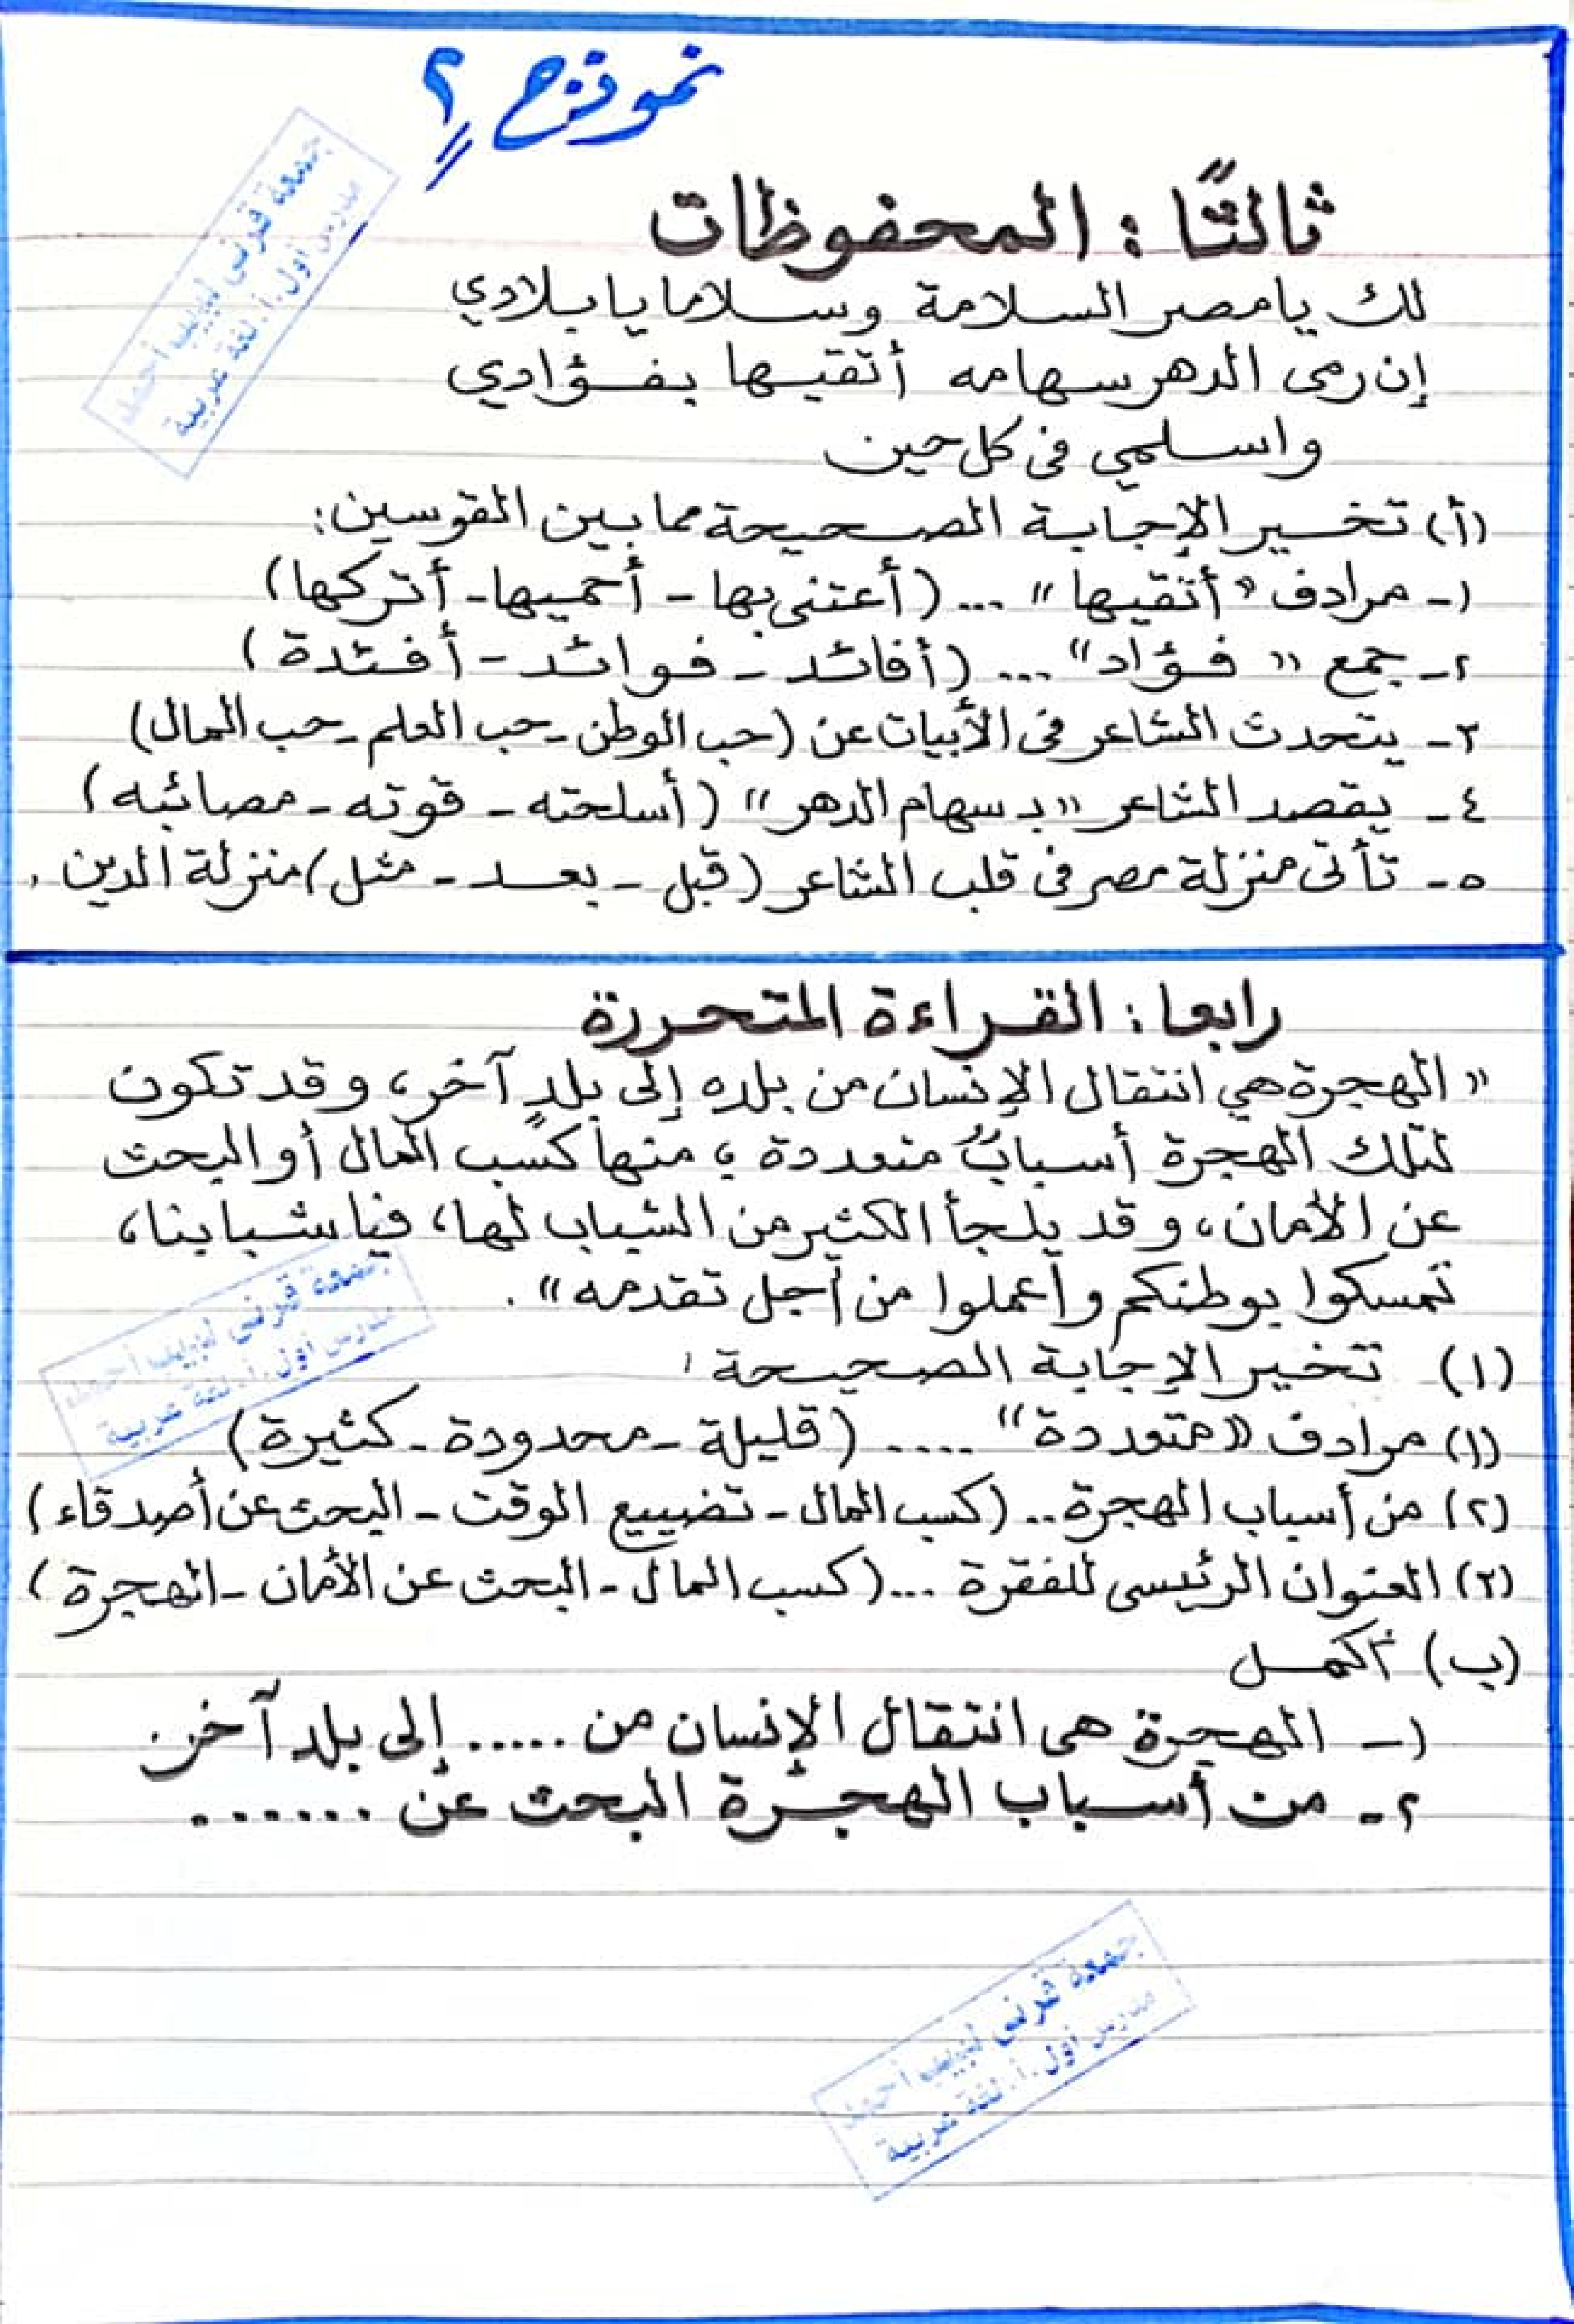 نموذج ٢
ثالثًا : المحفوظات
لك يا مصر السلامة وسلاما يا بلادي
إن رمى الدهر سهامه أتقيها بفؤادي
واسلمي فى كل حين
(أ) تخير الإجابة الصحيحة مما بين القوسين:
١- مرادف "أتقيها" ... (أعتنى بها - أحميها - أتركها)
٢- جمع "فؤاد" ... (أفائد - فوائد - أفئدة)
٣- يتحدث الشاعر فى الأبيات عن (حب الوطن - حب العلم - حب المال)
٤- يقصد الشاعر "بـ سهام الدهر" (أسلحته - قوته - مصائبه)
٥- تأتى منزلة مصر فى قلب الشاعر (قبل - بعد - مثل) منزلة الدين .
رابعا : القراءة المتحررة
"الهجرة هي انتقال الإنسان من بلده إلى بلدٍ آخر، وقد تكون
لتلك الهجرة أسبابٌ متعددة ؛ منها كسب المال أو البحث
عن الأمان، وقد يلجأ الكثير من الشباب لها، فيا شبابنا،
تمسكوا بوطنكم واعملوا من أجل تقدمه" .
(١) تخير الإجابة الصحيحة :
(١) مرادف "متعددة" .... (قليلة - محدودة - كثيرة)
(٢) من أسباب الهجرة .. (كسب المال - تضييع الوقت - البحث عن أصدقاء)
(٣) العنوان الرئيسى للفقرة ... (كسب المال - البحث عن الأمان - الهجرة)
(ب) أكمل
١- الهجرة هى انتقال الإنسان من ..... إلى بلد آخر.
٢- من أسباب الهجرة البحث عن ......
جمعة قرنى لبيب أحمد
مدرس أول أ. لغة عربية
جمعة قرنى لبيب أحمد
مدرس أول أ. لغة عربية
جمعة قرنى لبيب أحمد
مدرس أول أ. لغة عربية